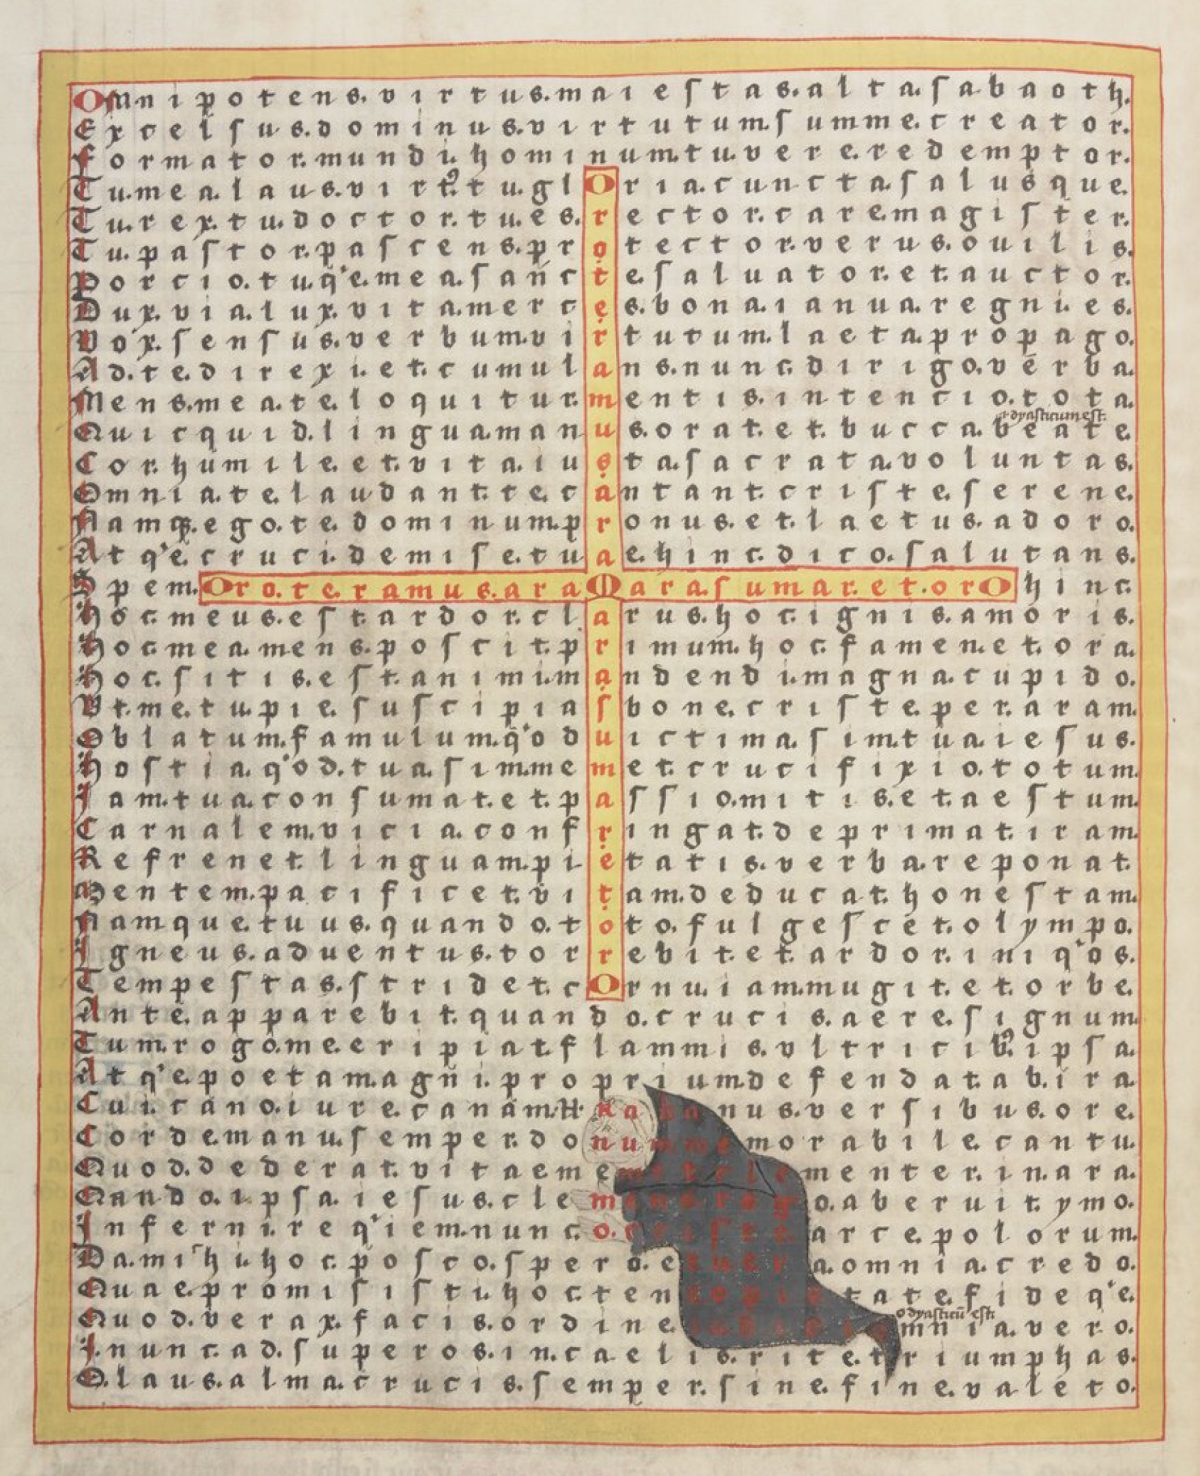 Omnipotens. virtus. maiestas. alta. sabaoth.
Excelsus. dominus. virtutum. summe. creator.
formator. mundi. hominum. tu. vere. redemptor.
Tu. mea. laus. virt9. tu. gloria. cuncta. salusque.
Tu. rex. tu. doctor. tu. es. rector. care. magister.
Tu. pastor. pascens. protector. verus. ouilis.
Porcio. tu. q'e. mea. sancte. saluator. et. auctor.
Dux. via. lux. vita. merces. bona. ianua. regni. es.
Vox. sensus. verbum. virtutum. laeta. propago.
Ad. te. direxi. et. cumulans. nunc. dirigo. verba.
Mens. mea. te. loquitur. mentis. intencio. tota.
Quicquid. lingua. manus. orat. et. bucca. beate.
Cor. humile. et. vita. iusta. sacrata. voluntas.
Omnia. te. laudant. te. cantant. criste. serene.
Namq. ego. te. dominum. pronus. et. laetus. adoro.
Atq'e. cruci. demise. tuae. hinc. dico. salutans.
Spem. Oro. te. ramus. ara Mara. sumar. et. orO hinc.
Hoc. meus. est. ardor. clarus. hoc. ignis. amoris.
Hoc. mea. mens. poscit. primum. hoc. famen. et. ora.
Hoc. sitis. est. animi. mandendi. magna. cupido.
Vt. me. tu. pie. suscipias bone. criste. per. aram.
Oblatum. famulum. q'od uictima. sim. tua. iesus.
Hostia. q'od. tua. sim. memet. crucifixio. totum.
Iam. tua. consumat. et. passio. mitis. et. aestum.
Carnalem. vicia. confringat. deprimat. iram.
Refrenet. linguam. pietatis. verba. reponat.
Mentem. pacificet. vitam. deducat. honestam.
Namque. tuus. quando. toto. fulgescet. olympo.
Igneus. aduentus. torrebit. et. ardor. iniq'os.
Tempestas. stridet. cornu. iam. mugit. et. orbe.
Ante. apparebit. quando. crucis. aere. signum.
Tum. rogo. me. eripiat. flammis. vltricib9. ipsa.
Atq'e. poeta. magni. proprium. defendat. ab. ira.
Cui. cano. iure. canam. Hrabanus. versibus. ore.
Corde. manu. semper. donum. memorabile. cantu.
Quod. dederat. vitae me et clementer. in. ara.
Nando. ipsa. iesus. clemens rogo. ab eruit. ymo.
Inferni. req'iem. nunc. o. criste. arce. polorum.
Da. mihi. hoc. posco. spero. et uera. omnia. credo.
Quae. promisisti. hoc. ten pietate. fideq'e.
Quod. verax. facis. ordine. omnia. vero.
In nunc. ad. superos. in. caelis. rite. triumphas.
O. laus. alma. crucis. semper. sine. fine. valeto.